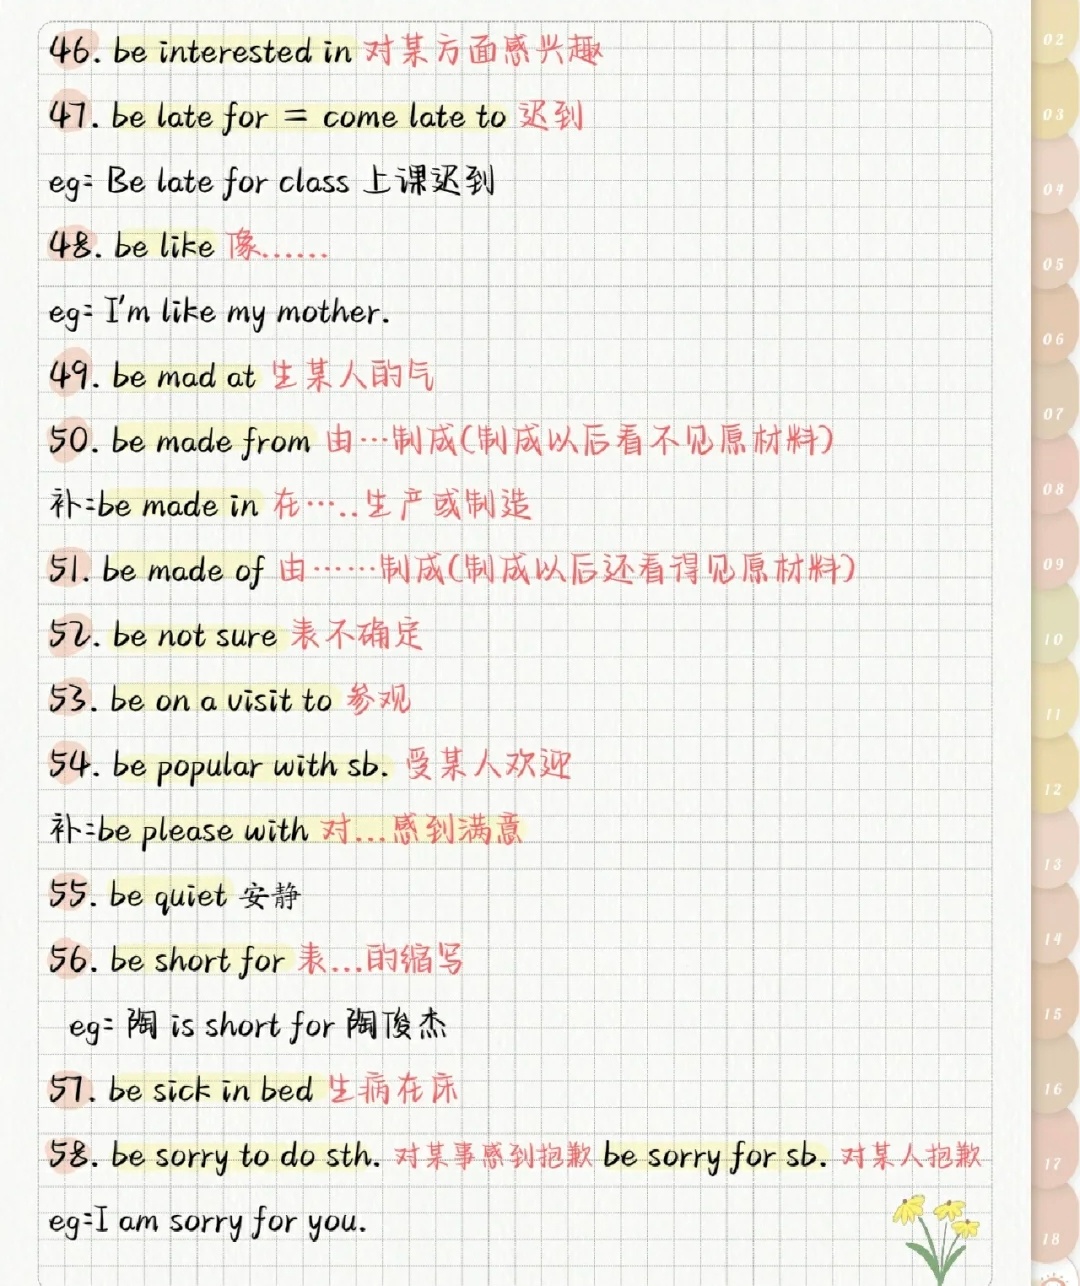 46. be interested in 对某方面感兴趣
47. be late for = come late to 迟到
eg: Be late for class 上课迟到
48. be like 像......
eg: I'm like my mother.
49. be mad at 生某人的气
50. be made from 由…制成(制成以后看不见原材料)
补:be made in 在…..生产或制造
51. be made of 由……制成(制成以后还看得见原材料)
52. be not sure 表不确定
53. be on a visit to 参观
54. be popular with sb. 受某人欢迎
补:be please with 对...感到满意
55. be quiet 安静
56. be short for 表...的缩写
eg: 陶 is short for 陶俊杰
57. be sick in bed 生病在床
58. be sorry to do sth. 对某事感到抱歉 be sorry for sb. 对某人抱歉
eg:I am sorry for you.
02
03
04
05
06
07
08
09
10
11
12
13
14
15
16
17
18